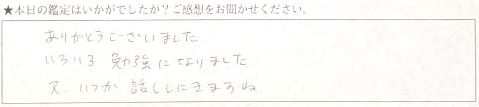 ★本日の鑑定はいかがでしたか？ご感想をお聞かせください。
ありがとうございました.
いろいろ勉強になりました
又、いつか話ししにきますね.